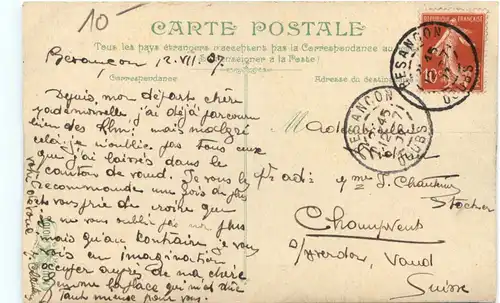 10
CARTE POSTALE
Tous les pays étrangers n'acceptent pas la Correspondance au
enseigner à la Poste!
Correspondance
Adresse du destin
Besançon 12.VII.07
Depuis mon départ chère
Mademoiselle j'ai déjà parcouru
bien des Klm! mais malgré
cela je n'oublie pas tous ceux
que j'ai laissés dans le
canton de Vaud. Je vous le
recommande une fois de plus
vous prie de croire que
je ne vous oublie pas non plus
mais qu'au contraire je vous
suis en imagination
occuper auprès de ma chère
femme la place qui m'est due
Tant mieux pour vous.
votre dévoué
REPUBLIQUE FRANÇAISE
10
BESANÇON
DOUBS
BESANÇON
DOUBS
Mademoiselle
Champvent
s/Yverdon, Vaud
Suisse